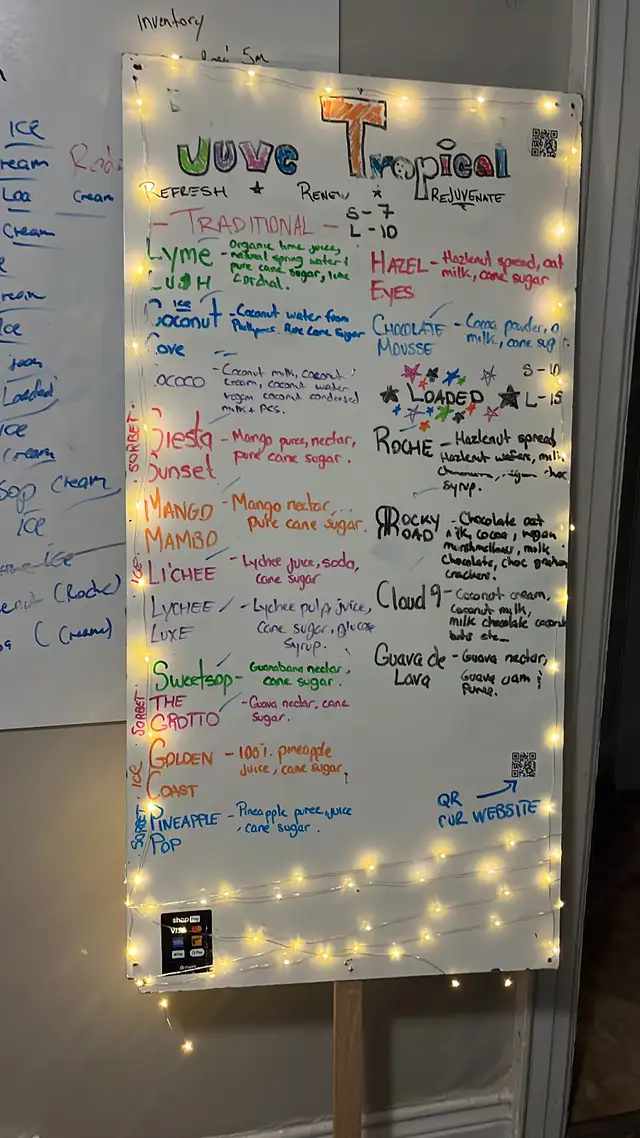 Inventory
5m
ICE
ream
Loa
Cream
Cream
ream
Loaded
ICE
Cream
Sop Cream
ICE
(Roche)
Juve Tropical
REFRESH ★ RENEW ★ REJUVENATE
- TRADITIONAL -
S - 7
L - 10
Lyme - Organic lime juice,
natural spring water &
pure cane sugar, lime
Cordial.
LUSH
Coconut - Coconut water from
ICE
Pure Cane Sugar
Cove
COCO - Coconut milk, coconut
cream, coconut water
vegan coconut condensed
milk & pcs.
SORBET.
Siesta - Mango puree, nectar,
pure cane sugar.
Sunset
MANGO - Mango nectar,
pure cane sugar.
MAMBO
ICE
LI'CHEE - Lychee juice, soda,
cane sugar
LYCHEE - Lychee pulp, juice,
cane sugar, glucose
syrup.
LUXE
Sweetsop - Guanabana nectar,
cane sugar.
SORBET.
THE - Guava nectar, cane
sugar.
GROTTO
ICE
GOLDEN - 100% pineapple
juice, cane sugar
COAST
SORBET
PINEAPPLE - Pineapple puree, juice
, cane sugar.
POP
HAZEL - Hazlenut spread, oat
milk, cane sugar
EYES
CHOCOLATE - Cocoa powder, o
milk, cane sug
MOUSSE
S - 10
★ LOADED ★ L - 15
ROCHE - Hazlenut spread
Hazlenut wafers, milk
choc
syrup.
ROCKY - Chocolate oat
milk, cocoa, vegan
marshmellows, milk
chocolate, choc graham
crackers.
ROAD
Cloud 9 - Coconut cream,
coconut milk,
milk chocolate coconut
bits etc...
Guava de - Guava nectar,
Guava jam &
puree.
Lava
QR
OUR WEBSITE
shop Pay
VISA